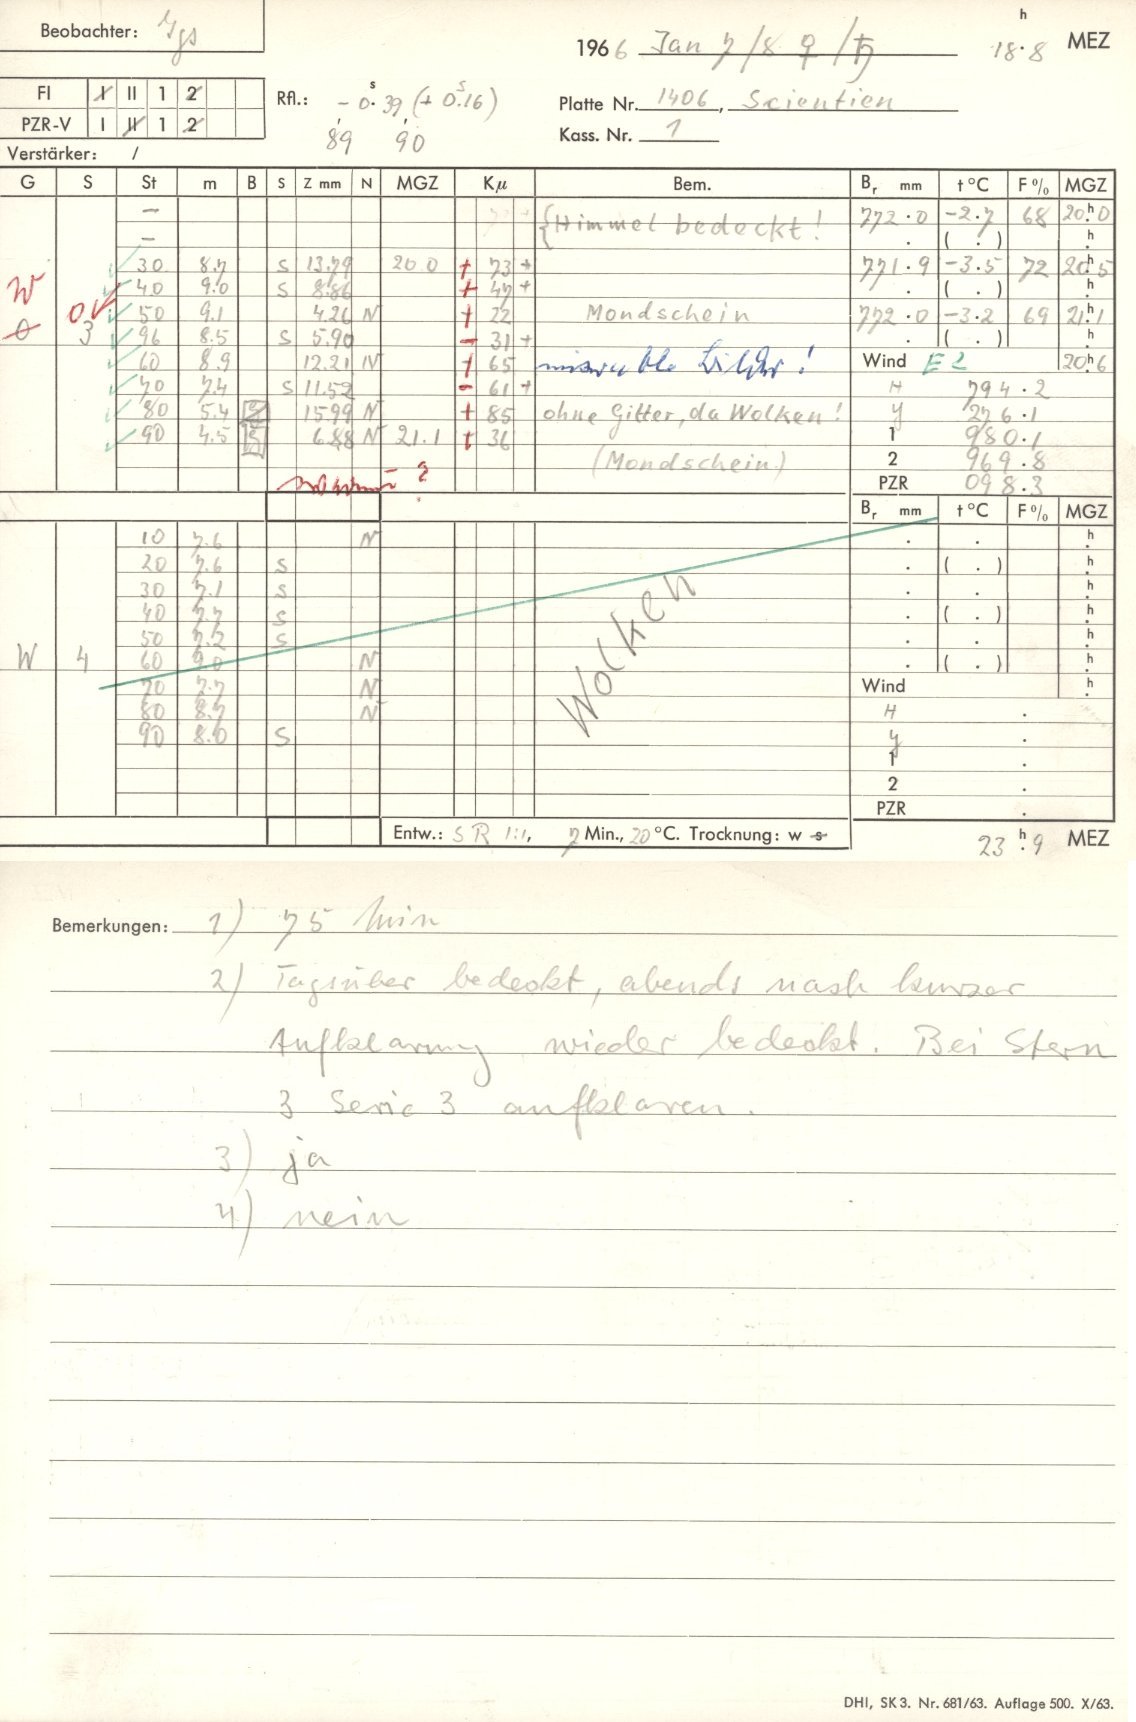 Beobachter:
1966 Jan 7/8 ♀/♄ 18.8 h MEZ
FI I II 1 2
PZR-V I II 1 2
Verstärker: /
Rfl.: - 0.39 s (+ 0.16 s)
89 90
Platte Nr. 1406, Scientien
Kass. Nr. 1
G S St m B S Z mm N MGZ Kµ Bem. Br mm t °C F % MGZ
– {Himmel bedeckt! 772.0 -2.7 68 20.h0
– . ( . ) .h
30 8.7 S 13.79 20.0 + 73 + 771.9 -3.5 72 20.h5
W 40 9.0 S 8.86 + 47 + . ( . ) .h
0 50 9.1 4.26 N + 22 Mondschein 772.0 -3.2 69 21.h1
0 3 96 8.5 S 5.90 - 31 + . ( . ) .h
60 8.9 12.21 N + 65 miserable Bilder! Wind E 2 20.h6
70 7.4 S 11.52 - 61 + H 794.2
80 5.4 15.99 N + 85 ohne Gitter, da Wolken! y 226.1
90 4.5 6.88 N 21.1 + 36 1 980.1
(Mondschein) 2 969.8
warum? PZR 098.3
Br mm t °C F % MGZ
10 7.6 N . . h
20 7.6 S . ( . ) .h
30 7.1 S . . .h
40 7.7 S . ( . ) .h
50 7.2 S . . .h
W 4 60 9.0 N Wolken . ( . ) .h
70 7.7 N Wind .h
80 8.7 N H .
90 8.0 S y .
1 .
2 .
PZR .
Entw.: S R 1:1, 7 Min., 20 °C. Trocknung: w s 23.h9 MEZ
Bemerkungen: 1) 75 Min
2) Tagsüber bedeckt, abends nach kurzer
Aufklarung wieder bedeckt. Bei Stern
3 Serie 3 aufklaren.
3) ja
4) nein
DHI, SK 3. Nr. 681/63. Auflage 500. X/63.